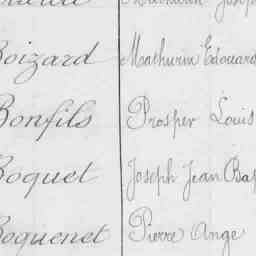 Boizard Mathurin Edouard
Bonfils Prosper Louis
Boquet Joseph Jean Bap
Boquenet Pierre Ange